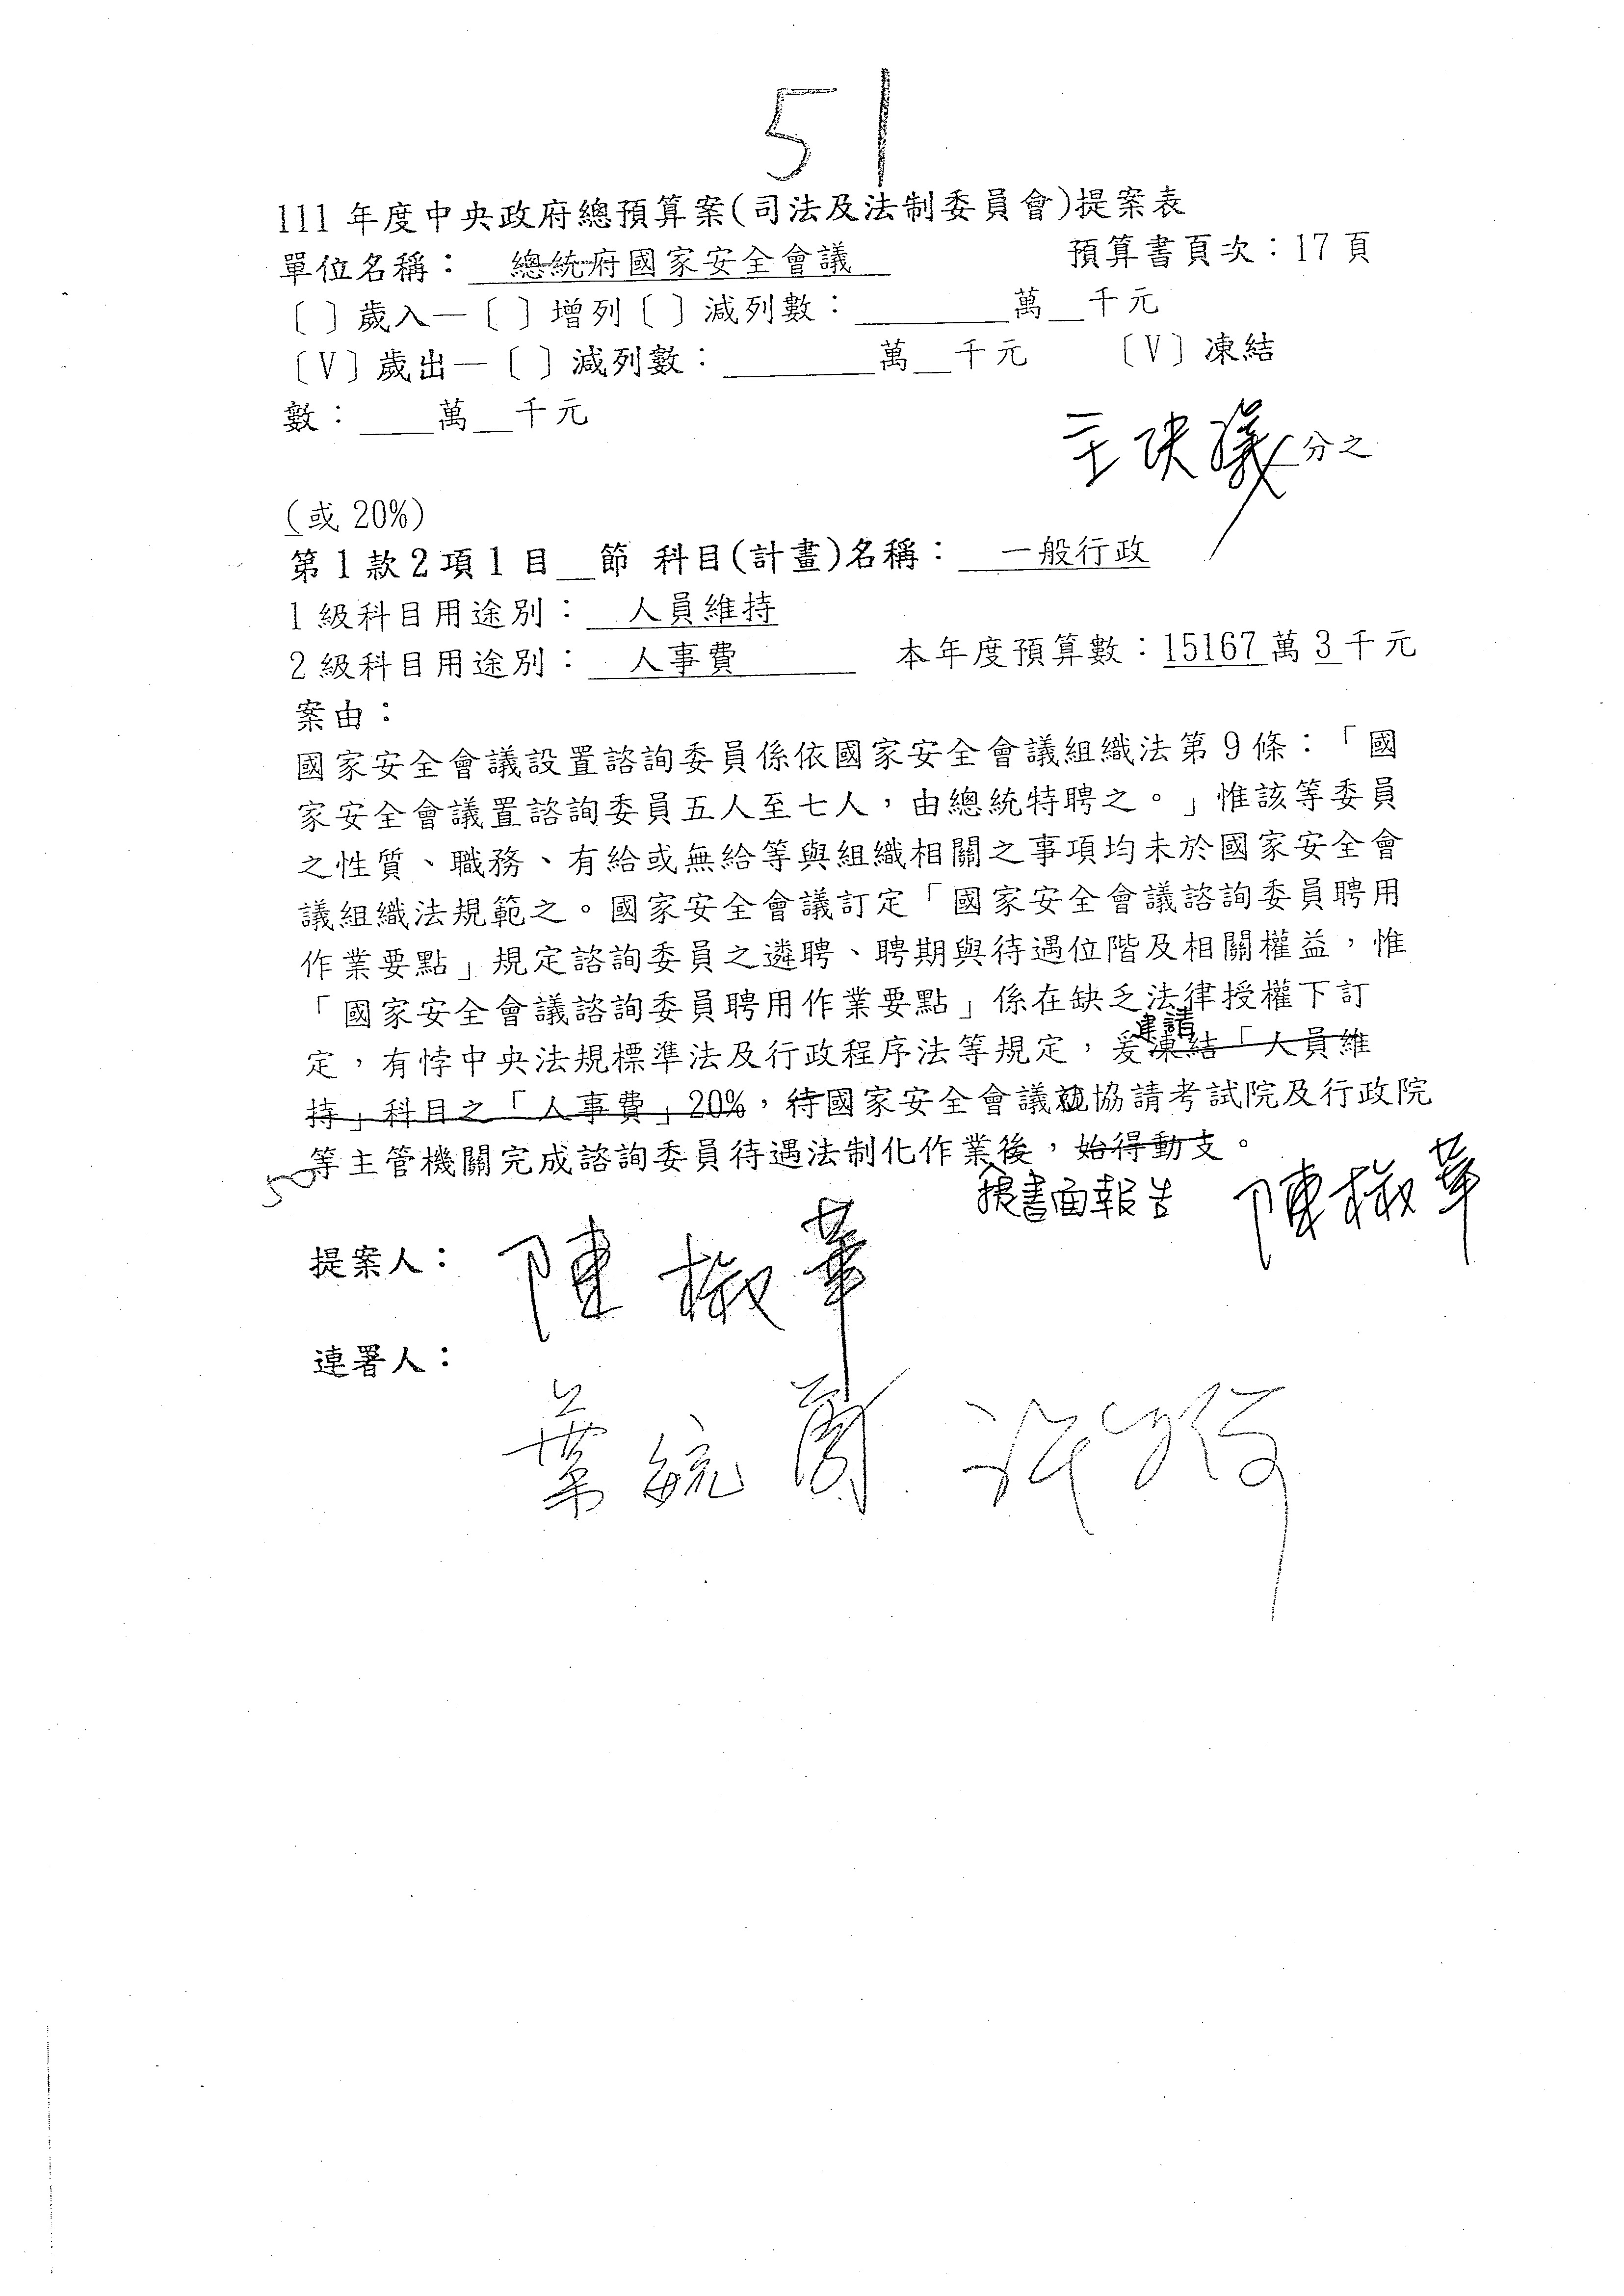 51
111 年度中央政府總預算案(司法及法制委員會)提案表
單位名稱： 總統府國家安全會議 預算書頁次：17 頁
〔 〕歲入—〔 〕增列〔 〕減列數：________萬__千元
〔V〕歲出—〔 〕減列數：________萬__千元 〔V〕凍結
數：____萬__千元
主決議 分之
(或 20%)
第 1 款 2 項 1 目__節 科目(計畫)名稱： 一般行政
1 級科目用途別： 人員維持
2 級科目用途別： 人事費 本年度預算數：15167 萬 3 千元
案由：
國家安全會議設置諮詢委員係依國家安全會議組織法第 9 條：「國
家安全會議置諮詢委員五人至七人，由總統特聘之。」惟該等委員
之性質、職務、有給或無給等與組織相關之事項均未於國家安全會
議組織法規範之。國家安全會議訂定「國家安全會議諮詢委員聘用
作業要點」規定諮詢委員之遴聘、聘期與待遇位階及相關權益，惟
「國家安全會議諮詢委員聘用作業要點」係在缺乏法律授權下訂
建請
定，有悖中央法規標準法及行政程序法等規定，爰凍結「人員維
持」科目之「人事費」20%，待國家安全會議協請考試院及行政院
等主管機關完成諮詢委員待遇法制化作業後，始得動支。
提書面報告 陳椒華
提案人： 陳椒華
連署人：
葉毓蘭